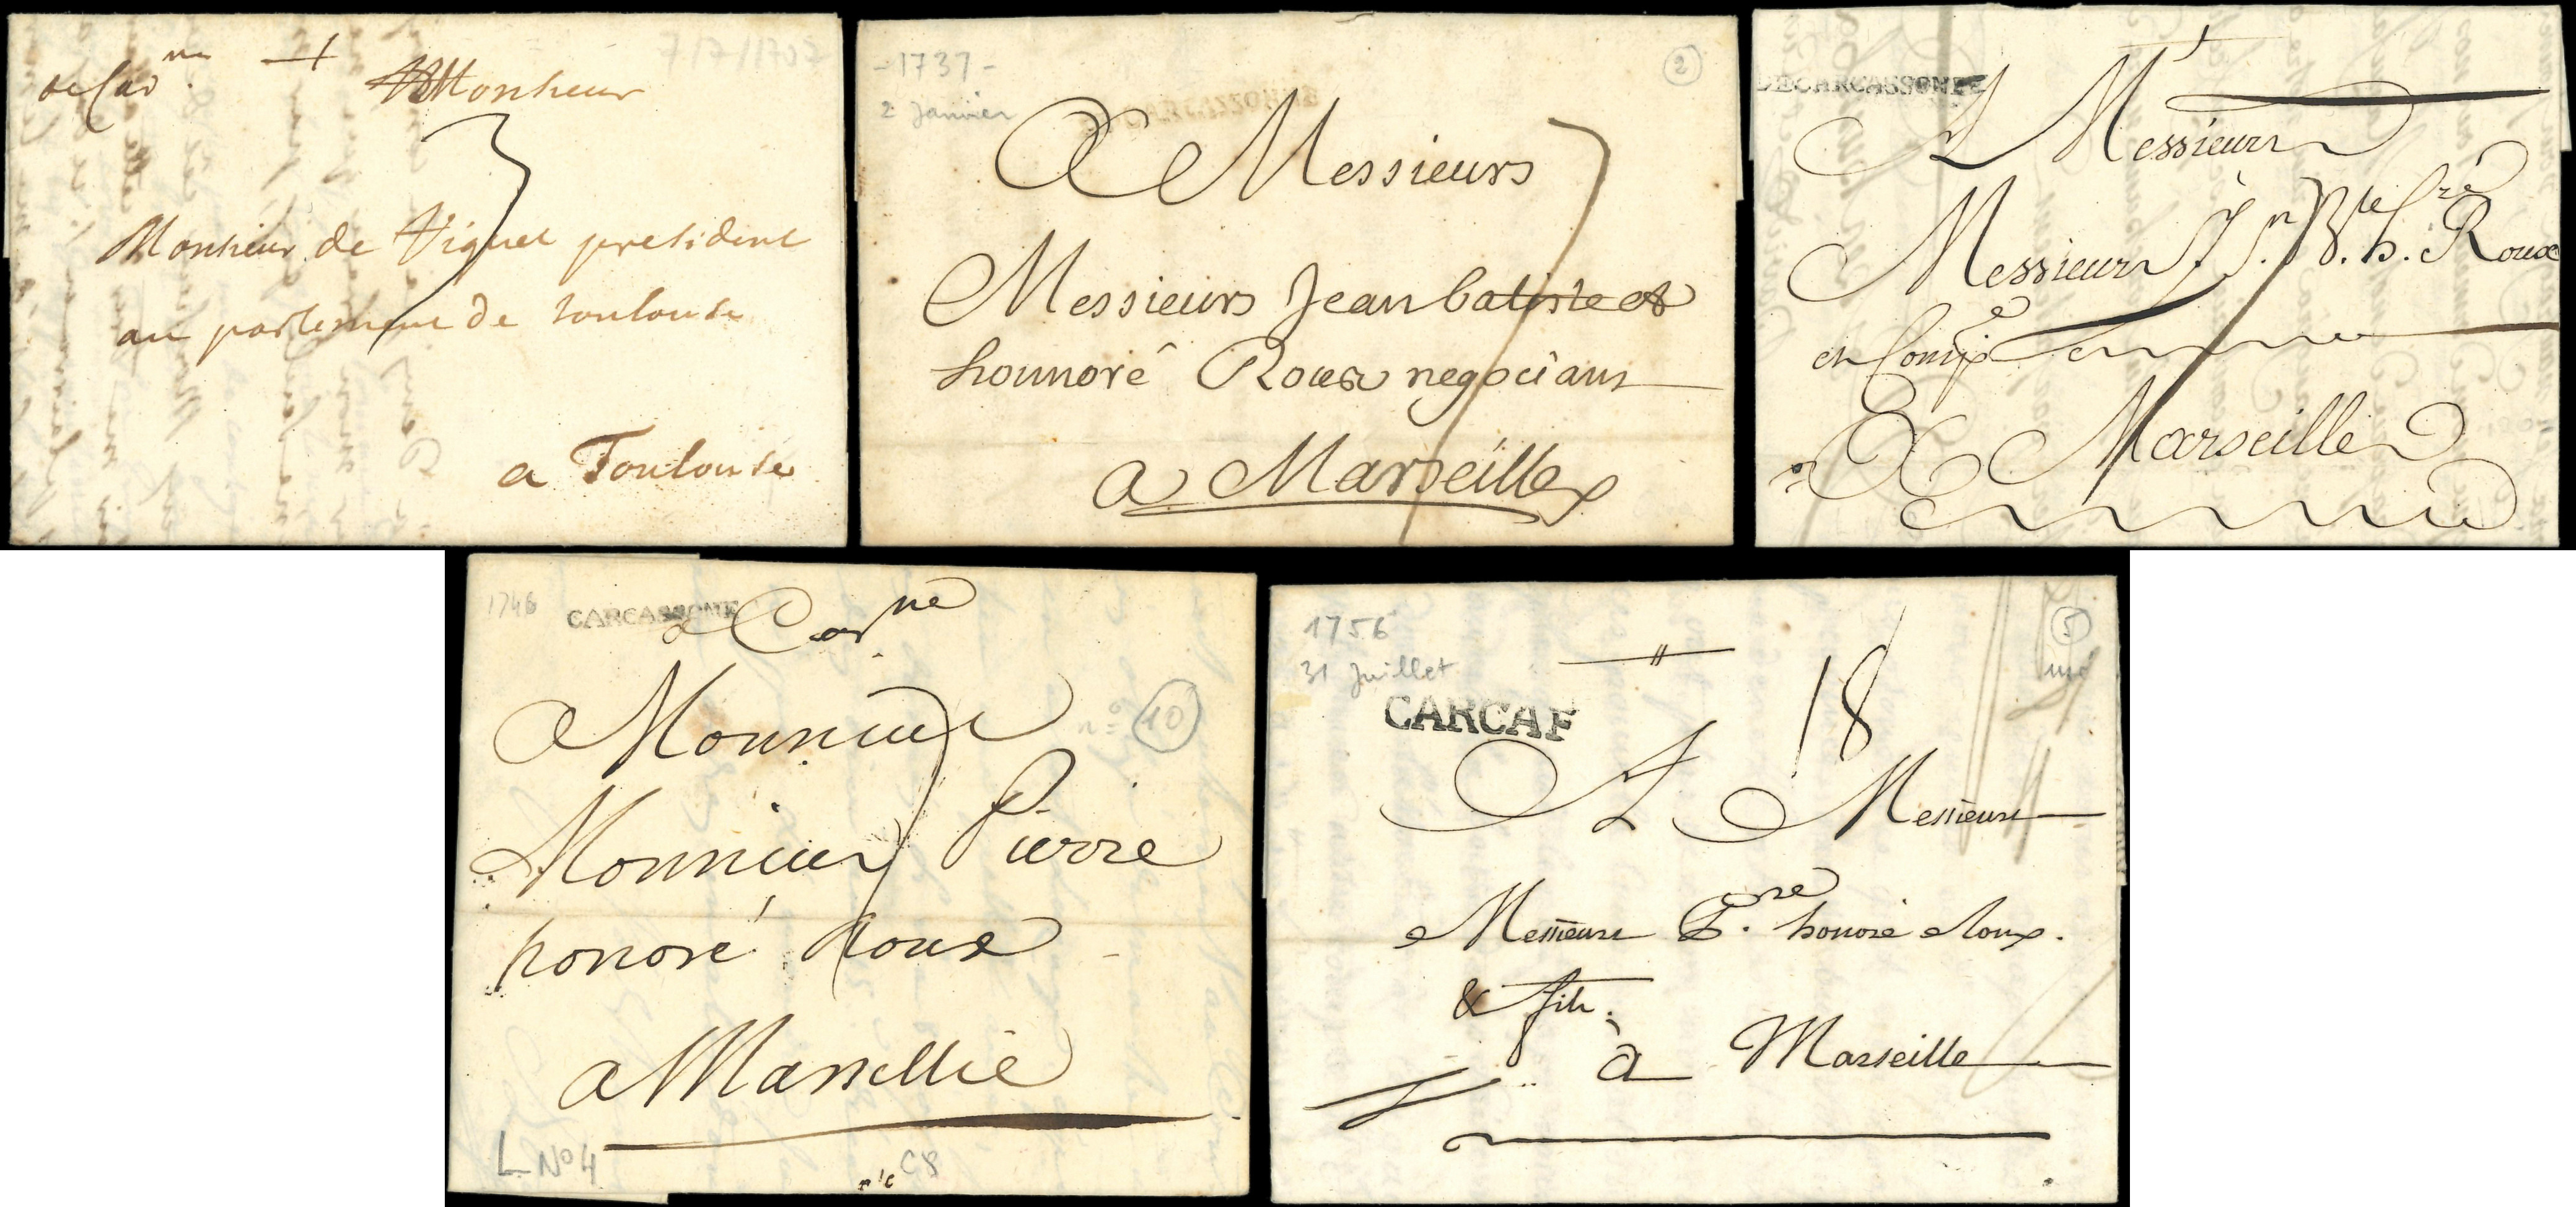 de Car.ne
7/7/1707
Monsieur
3
Monsieur de Viguet president
au parlement de toulouse
a Toulouse
-1737-
2 Janvier
2
A Messieurs
7
Messieurs Jean batiste et
honnoré Roux negocians
a Marseille
DECARCASSONNE
A Messieurs
Messieurs J.n B.te h.ré Roux
et Comp.e
A Marseille
1746
CARCASSONE
a Car.ne
A Monsieur
7
n° 10
Monsieur Pierre
honoré Roux
a Marsellie
L N° 4
C8
1756
31 Juillet
5
CARCAS
18
A Messieurs
Messieurs P.re honoré Roux.
& fils.
à Marseille